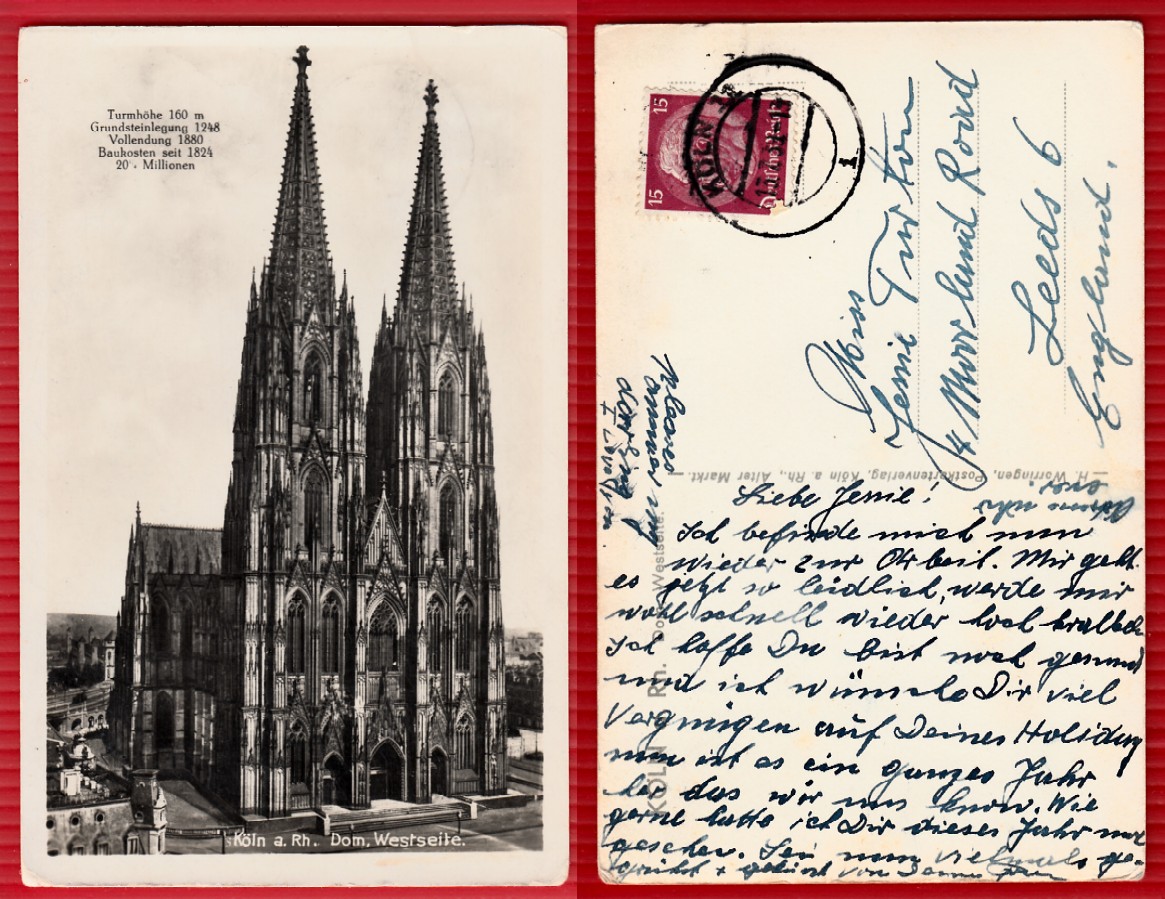 Turmhöhe 160 m
Grundsteinlegung 1248
Vollendung 1880
Baukosten seit 1824
20 Millionen
Köln a. Rh. Dom, Westseite.
15
15
KÖLN
1
Miss
Jessie Turton
4 Moorland Road
Leeds 6
England.
H. Worringen, Postkartenverlag, Köln a. Rh., Alter Markt.
KÖLN Rh. Westseite.
Pleases
ammer my
darling
Liebe Jessie!
Ich befinde mich nun
wieder zur Arbeit. Mir geht
es jetzt so leidlich, werde mir
wohl schnell wieder hoch
Ich hoffe Du bist noch gesund
und ich wünsche Dir viel
Vergnügen auf Deines Holiday
nun ist es ein ganzes Jahr
her das wir uns know. Wie
gerne hätte ich Dir dieses Jahr mal
gesehen. Sei nun vielmals ge-
grüßt + geküsst von Deinen